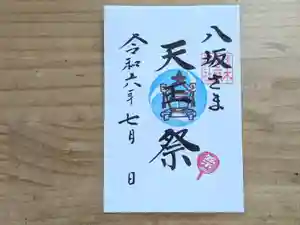 八坂さま
天王祭
令和六年七月 日
祭